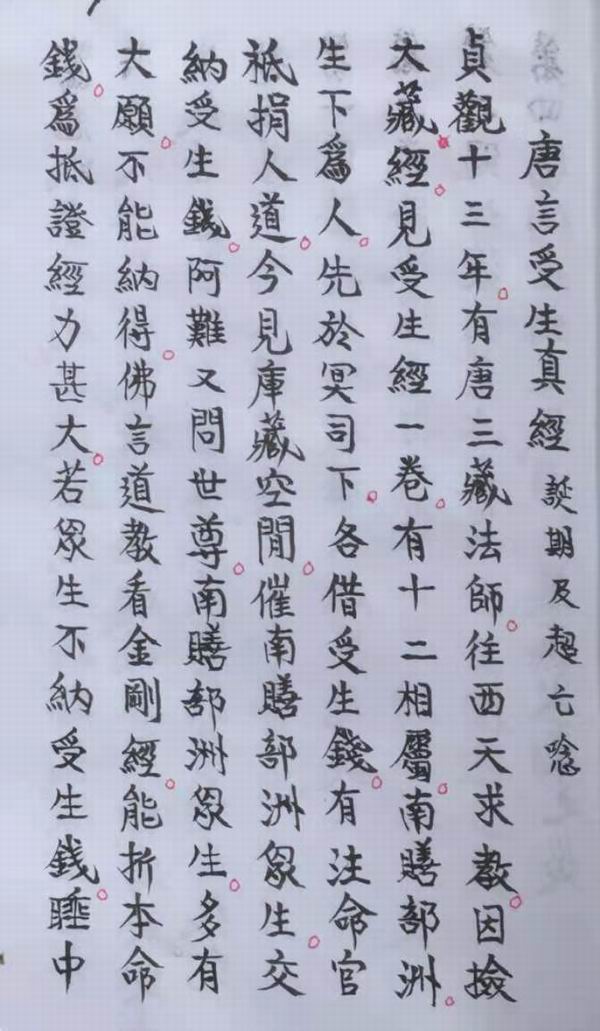 唐言受生真經 誕期及超亡唸
貞觀十三年。有唐三藏法師。往西天求教。因撿
大藏經。見受生經一卷。有十二相屬。南贍部洲。
生下爲人。先於冥司下。各借受生錢。有注命官
祗捐人道。今見庫藏空閒。催南贍部洲眾生。交
納受生錢。阿難又問世尊。南贍部洲眾生。多有
大願。不能納得。佛言道教看金剛經。能折本命
錢。爲抵證經力甚大。若眾生不納受生錢。睡中